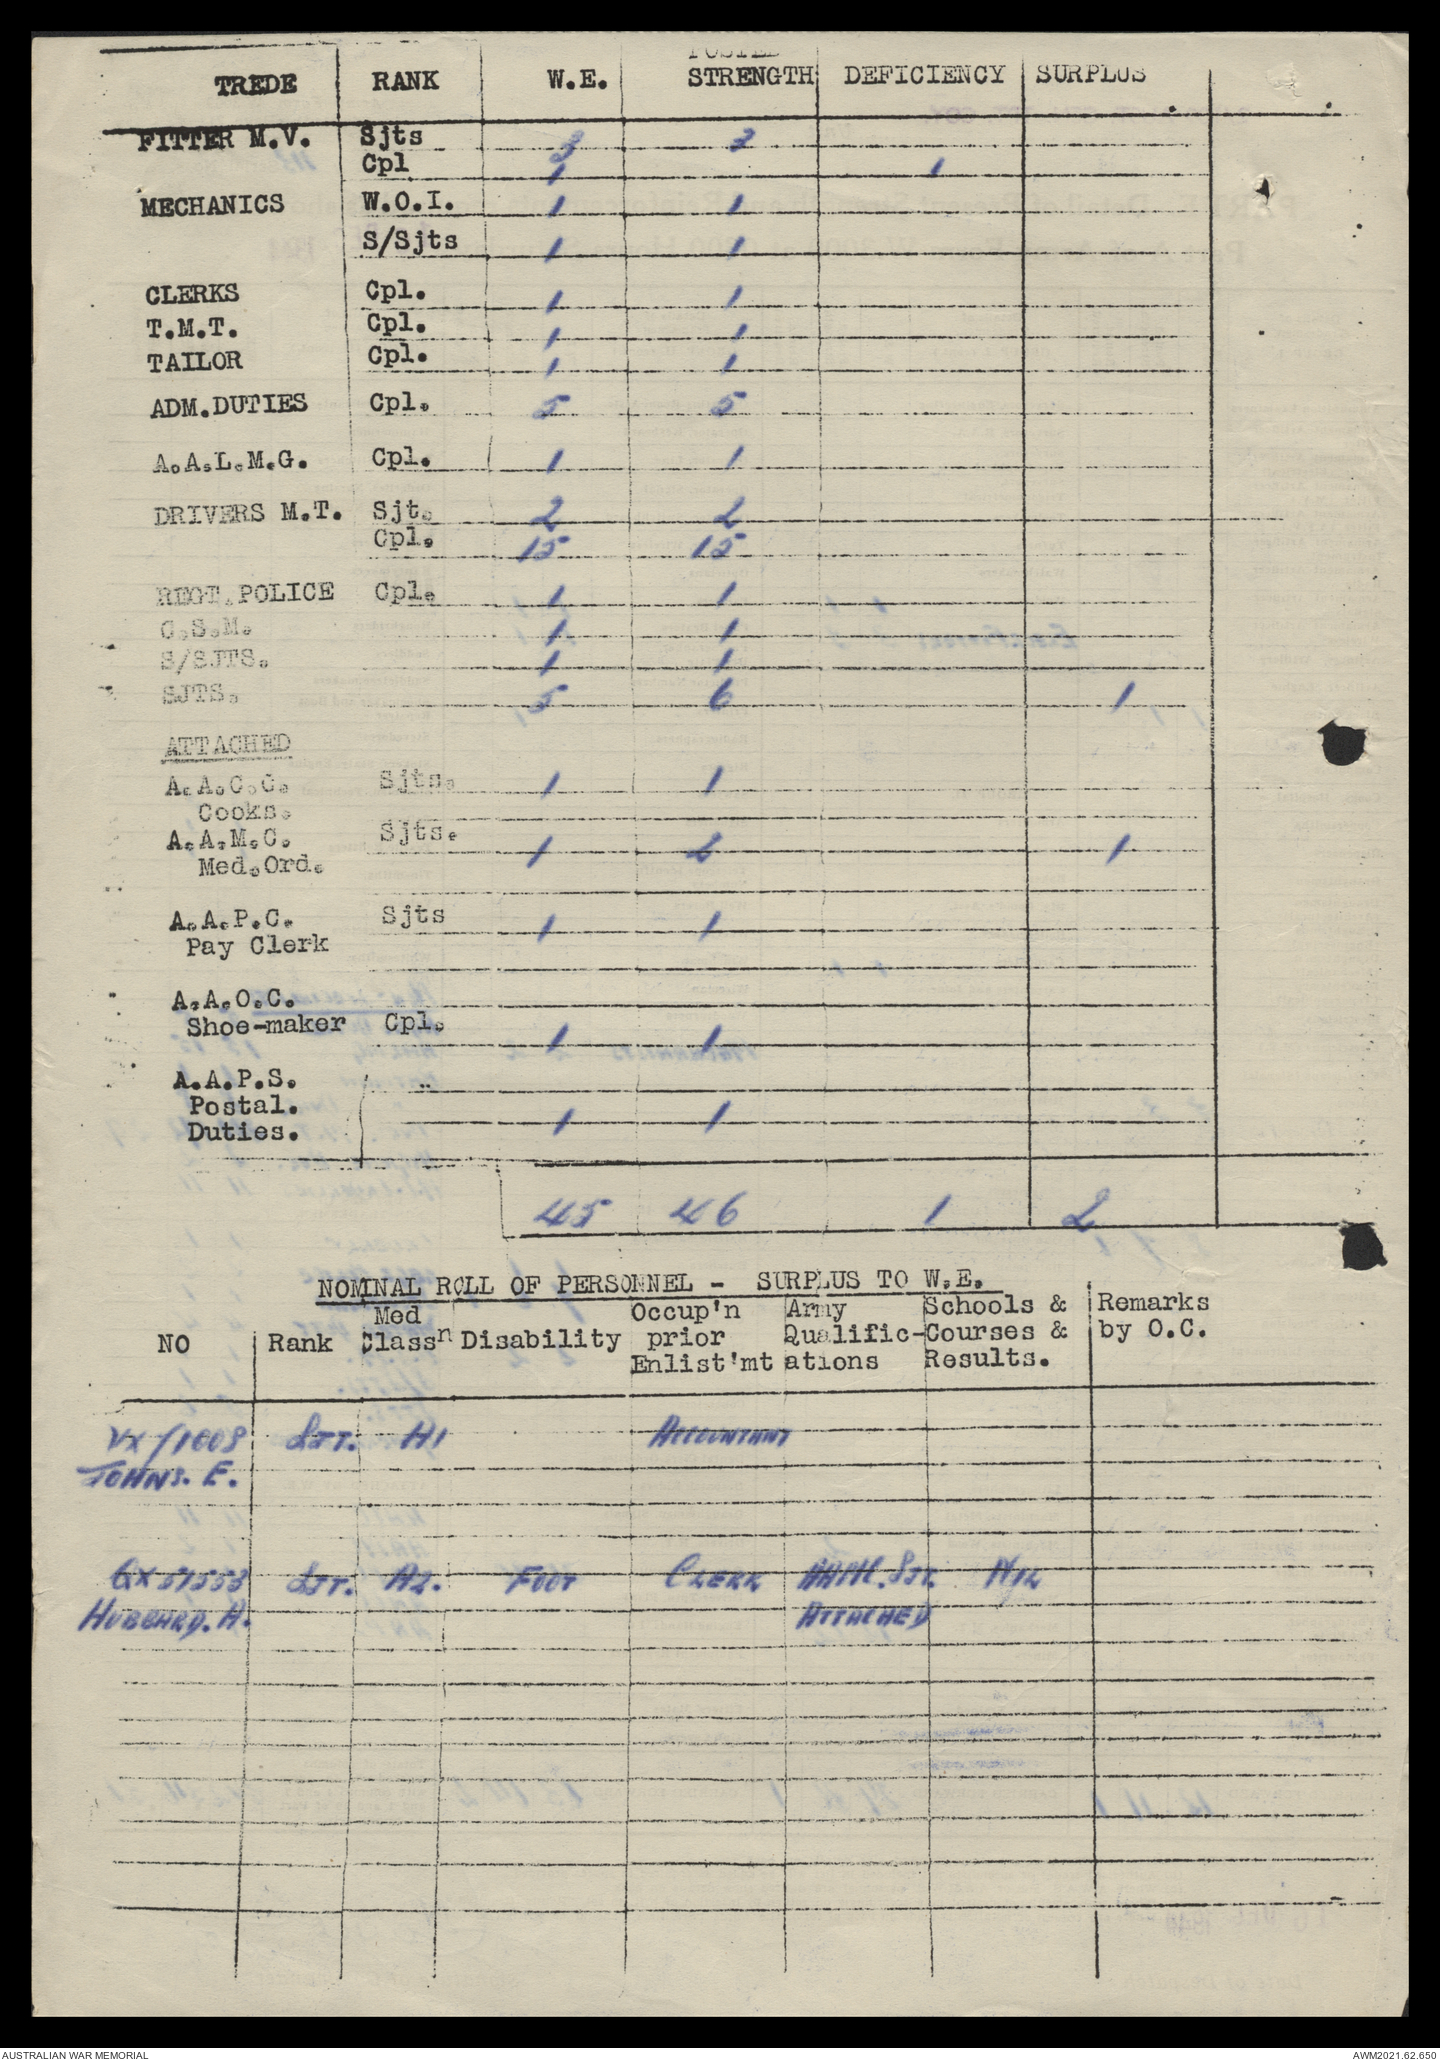 POSTED
TREDE RANK W.E. STRENGTH DEFICIENCY SURPLUS
FITTER M.V. Sjts 3 3
Cpl 1 1
MECHANICS W.O.I. 1 1
S/Sjts 1 1
CLERKS Cpl. 1 1
T.M.T. Cpl. 1 1
TAILOR Cpl. 1 1
ADM.DUTIES Cpl. 5 5
A.A.L.M.G. Cpl. 1 1
DRIVERS M.T. Sjt. 2 2
Cpl. 15 15
REGT.POLICE Cpl. 1 1
C.S.M. 1 1
S/SJTS. 1 1
SJTS. 5 6 1
ATTACHED
A.A.C.C. Sjts. 1 1
Cooks.
A.A.M.C. Sjts. 1 2 1
Med.Ord.
A.A.P.C. Sjts 1 1
Pay Clerk
A.A.O.C.
Shoe-maker Cpl. 1 1
A.A.P.S. ..
Postal.
Duties. 1 1
45 46 1 2
NOMINAL ROLL OF PERSONNEL - SURPLUS TO W.E.
NO Rank Med Classn Disability Occup'n prior Enlist'mt Army Qualific-ations Schools & Courses & Results. Remarks by O.C.
SJT. A1 ACCOUNTANT
JOHNS. E.
QX51553 SJT. A2. FOOT CLERK SJT. NIL
HUBBARD. A. ATTACHED
AUSTRALIAN WAR MEMORIAL AWM2021.62.650